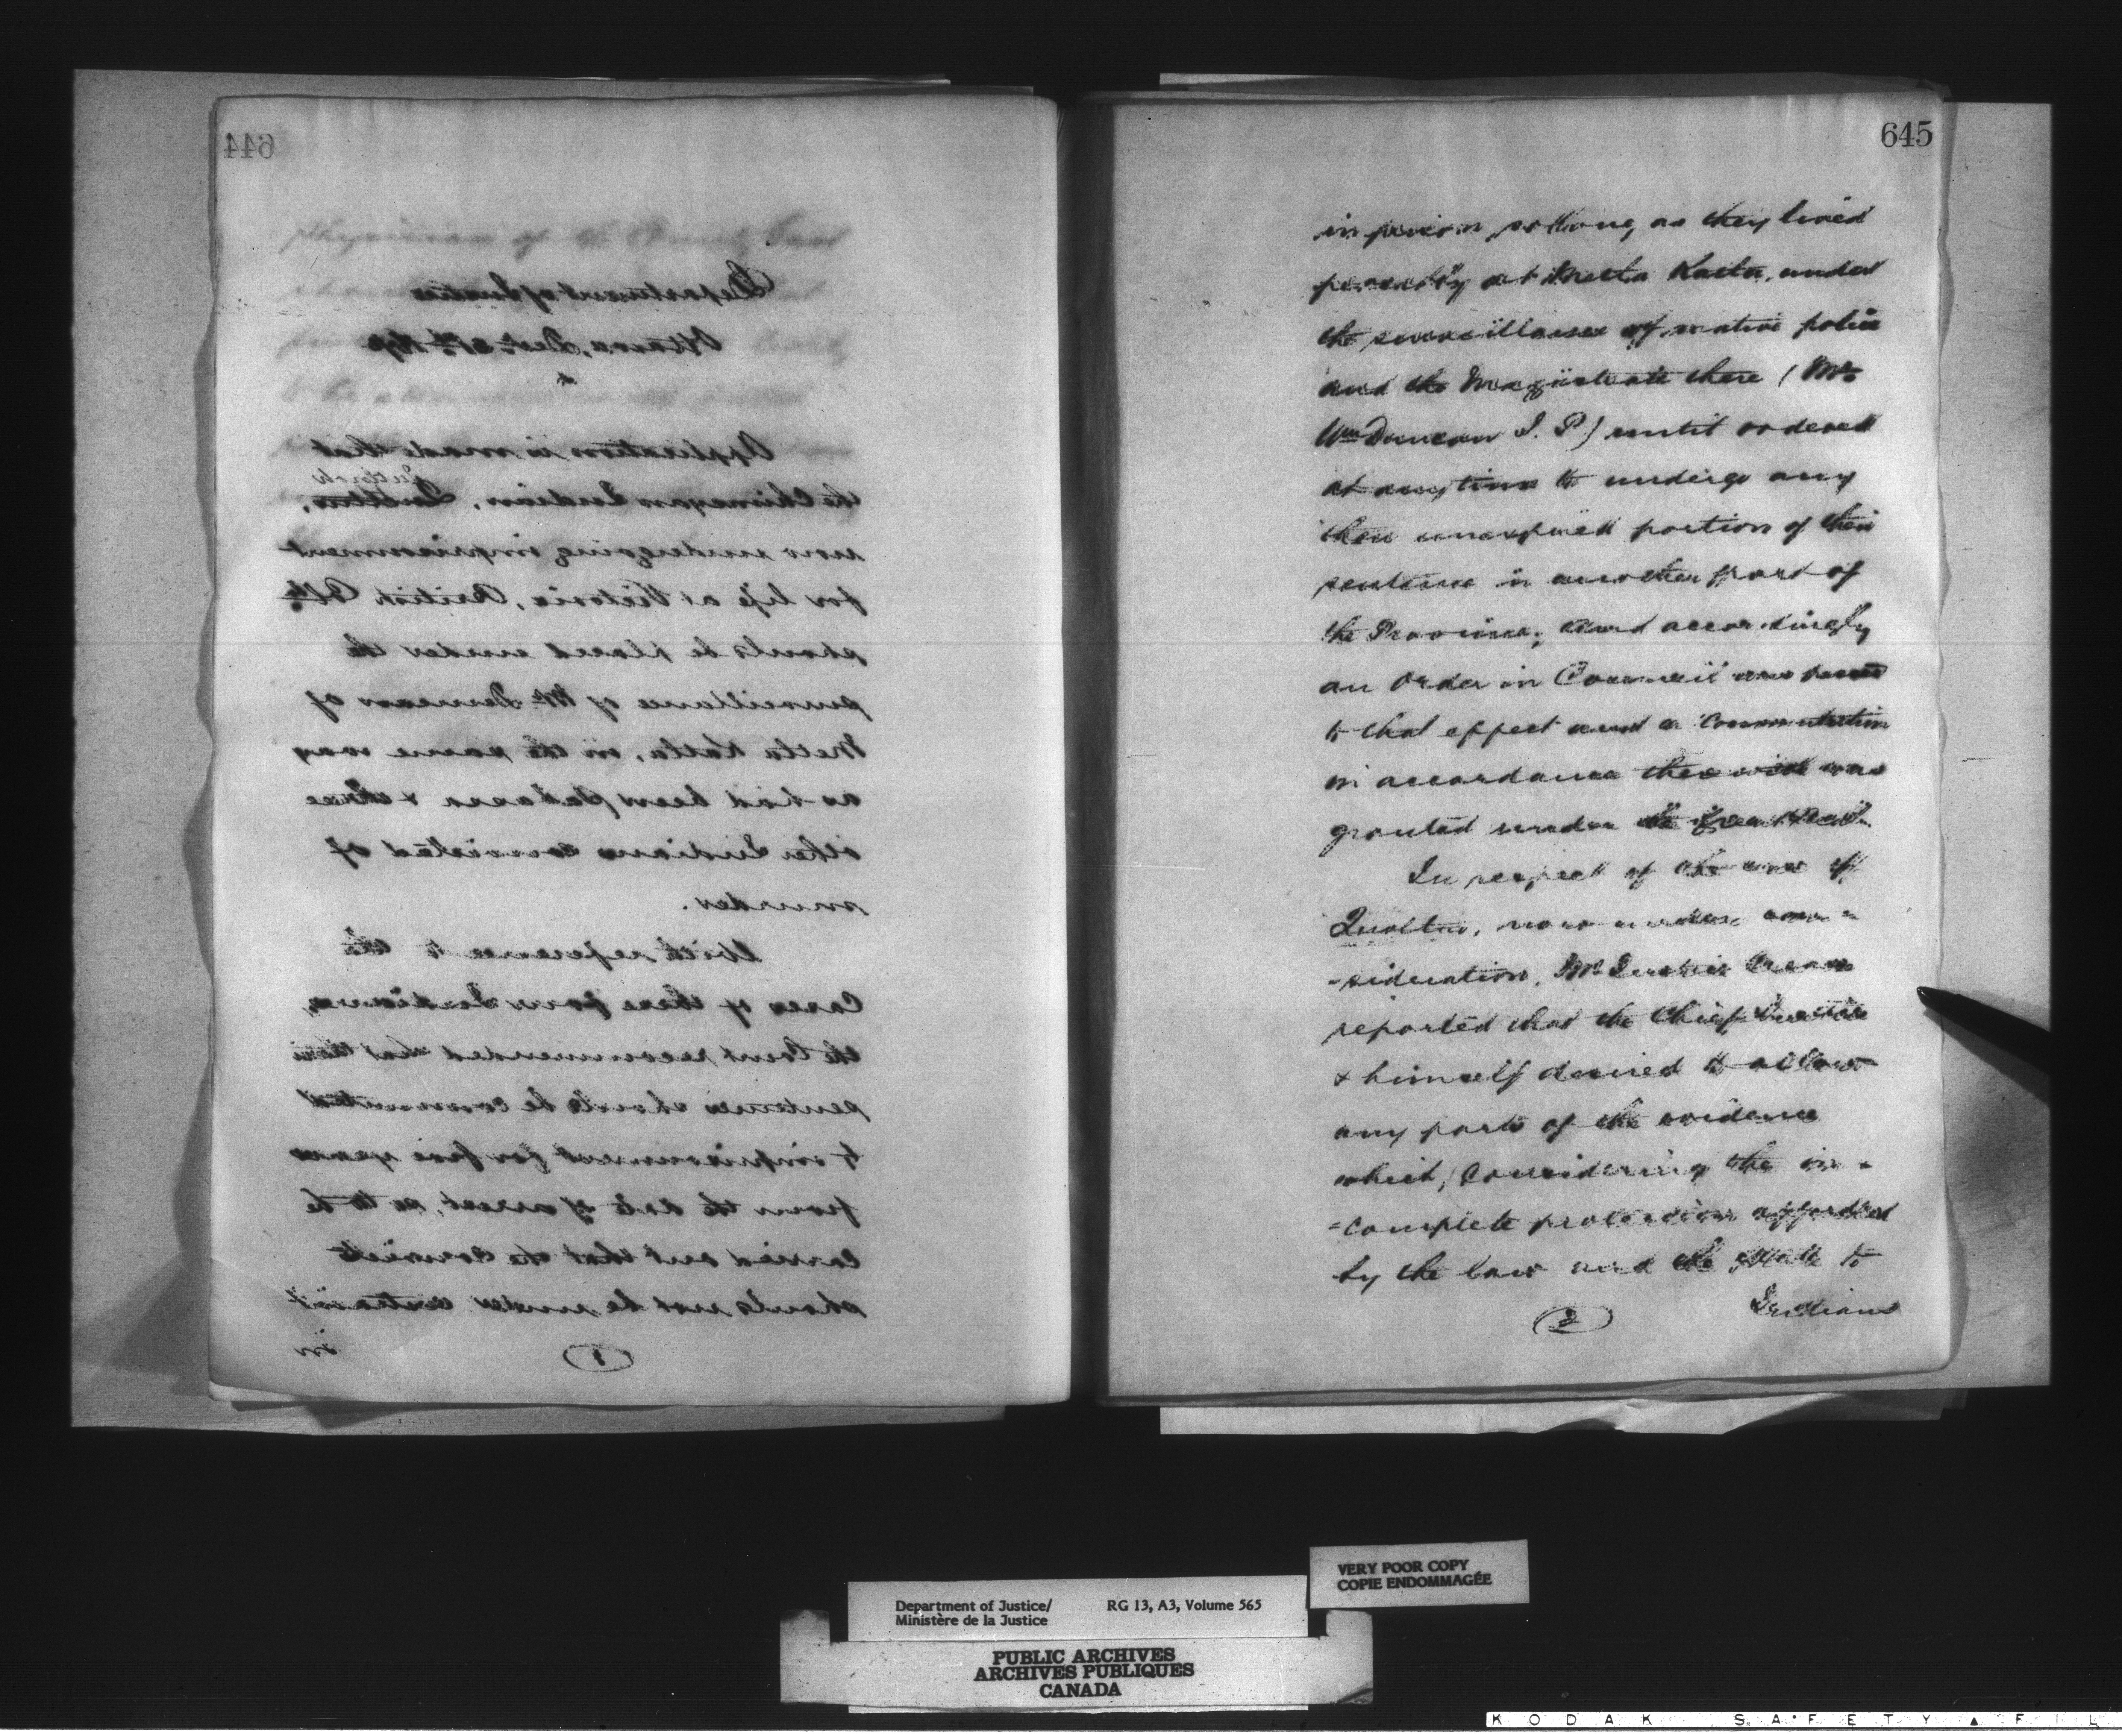 644
Department of Justice
Ottawa, Decr. 31st
Application is made that
the Chimsyan Indian,
now undergoing imprisonment
for life at Victoria, British Cola
should be placed under the
surveillance of Mr Duncan of
Metla Katla, in the same way
as had been & three
other Indians convicted of
murder.
With reference to the
cases of these four Indians,
the Court recommended that their
sentences should be commuted
to imprisonment for five years
from the date of arrest, so to be
carried out that the convicts
should not be under
in
1
645
in prison so long as they lived
peaceably at Metla Katla, under
the surveillance of native police
and the Magistrate there (Mr
Wm Duncan J. P.) until ordered
at any time to undergo any
then unexpired portion of their
sentence in another part of
the Province; and accordingly
an Order in Council was passed
to that effect and a commutation
in accordance therewith was
granted under the Great Seal.
In respect of the case of
now under con=
=sideration, Mr Justice Crease
reported that the Chief Justice
& himself desired to allow
any parts of the evidence
which, considering the in=
=complete protection afforded
by the law and the State to
Indians
2
VERY POOR COPY
COPIE ENDOMMAGÉE
Department of Justice/ RG 13, A3, Volume 565
Ministère de la Justice
PUBLIC ARCHIVES
ARCHIVES PUBLIQUES
CANADA
KODAK SAFETY FIL